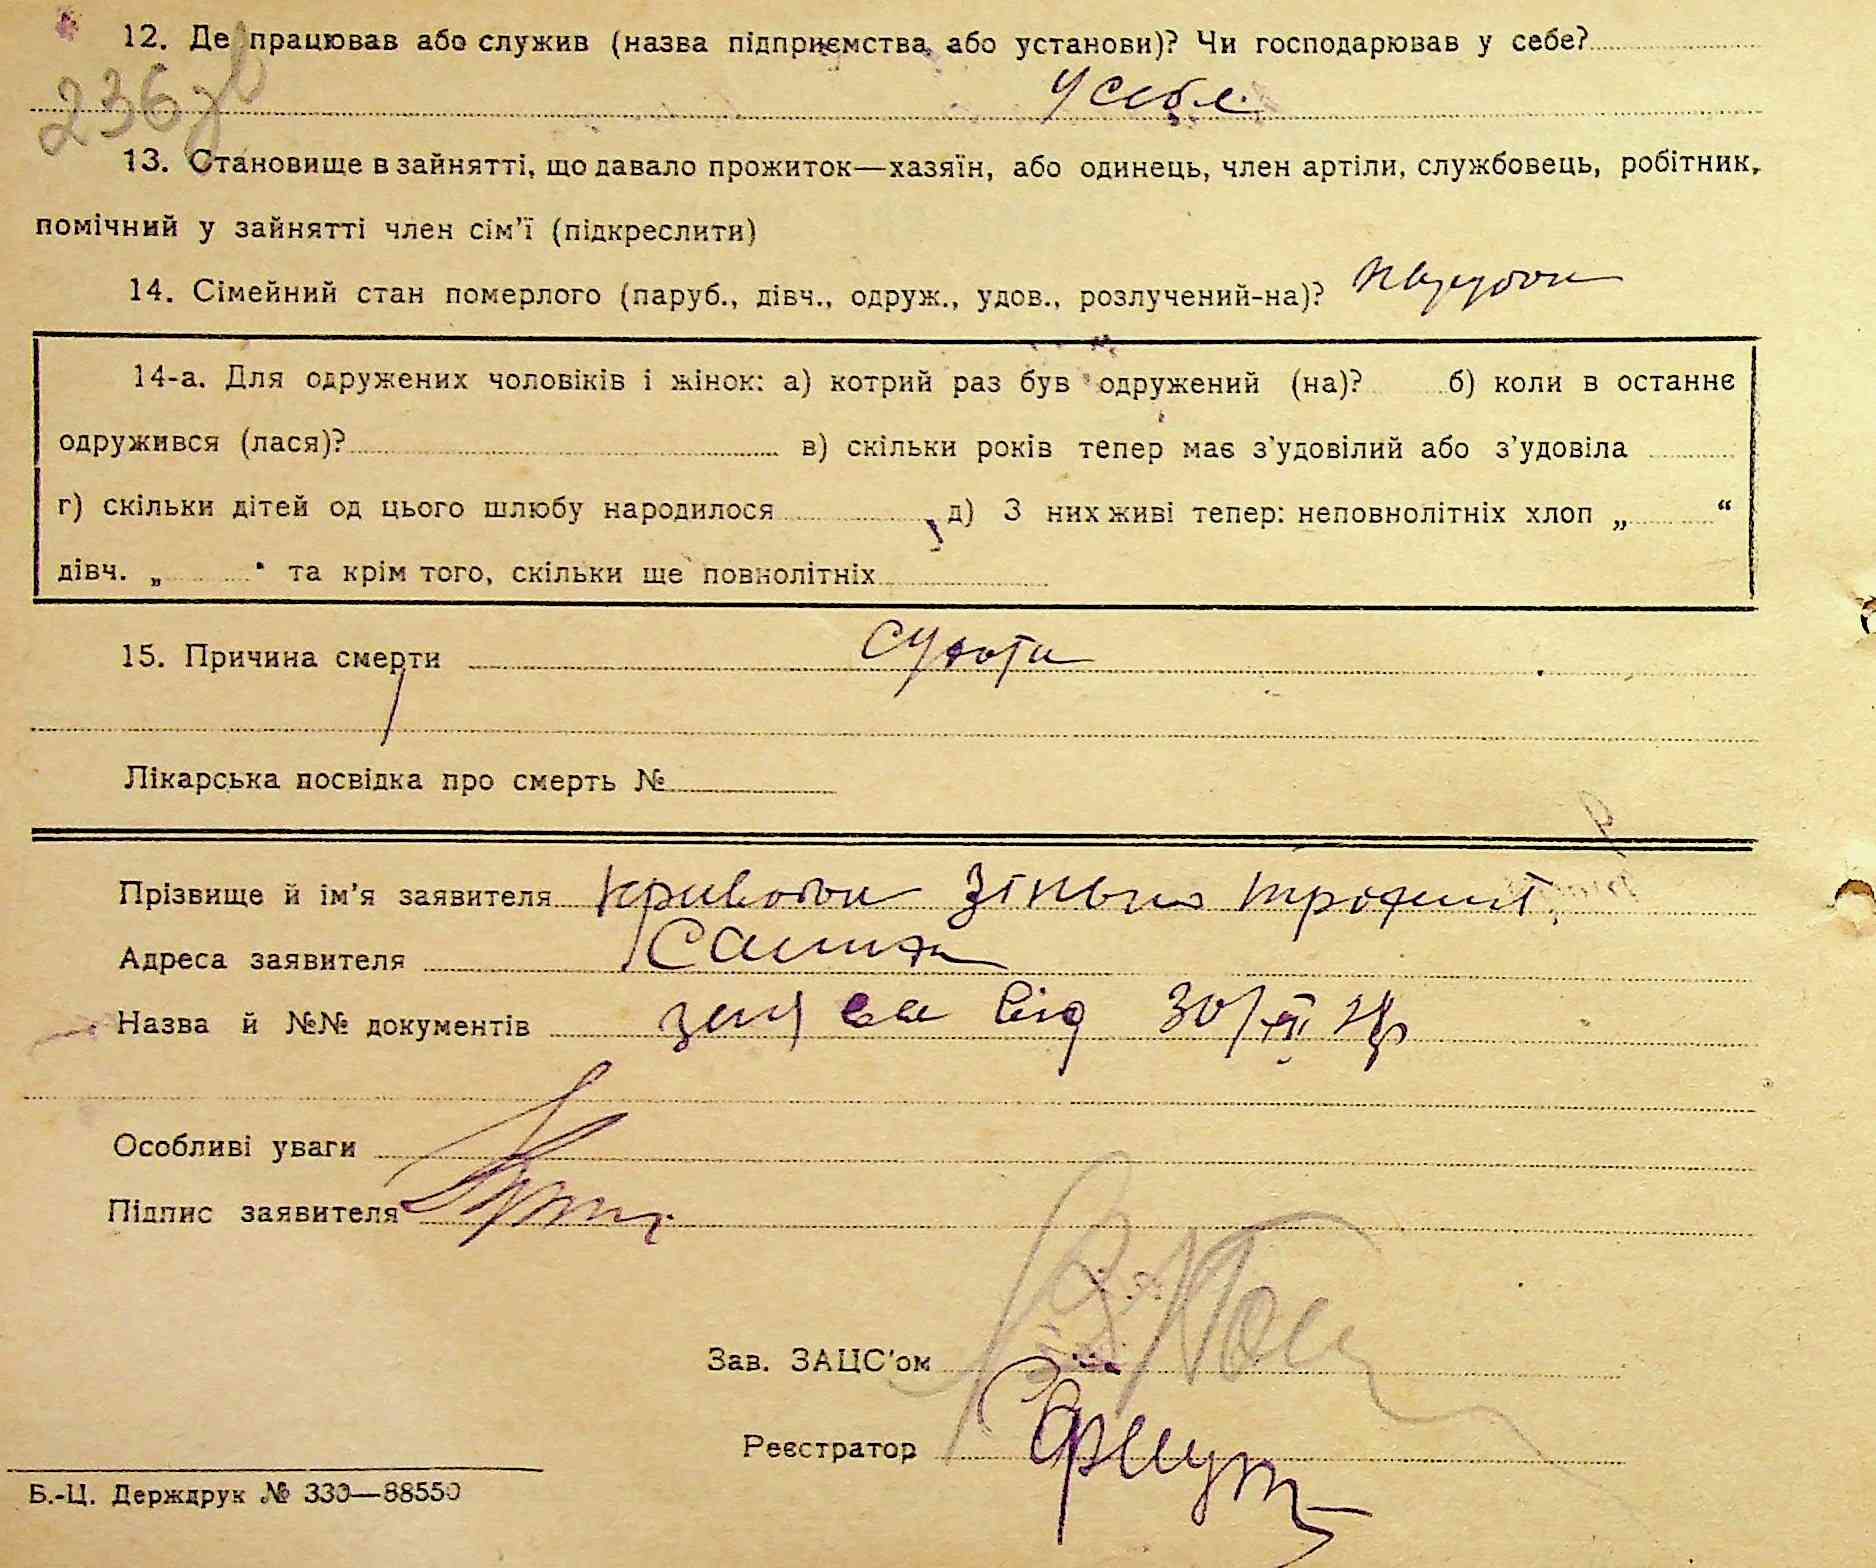 12. Де працював або служив (назва підприємства, або установи)? Чи господарював у себе?
236 зв
у себе.
13. Становище в зайнятті, що давало прожиток—хазяїн, або одинець, член артіли, службовець, робітник,
помічний у зайнятті член сім'ї (підкреслити)
14. Сімейний стан померлого (паруб., дівч., одруж., удов., розлучений-на)? парубок
14-а. Для одружених чоловіків і жінок: а) котрий раз був одружений (на)? б) коли в останнє
одружився (лася)? в) скільки років тепер має з'удовілий або з'удовіла
г) скільки дітей од цього шлюбу народилося д) З них живі тепер: неповнолітніх хлоп „ “
дівч. „ “ та крім того, скільки ще повнолітніх
15. Причина смерти сухоти
Лікарська посвідка про смерть №
Прізвище й ім'я заявителя Зінько
Адреса заявителя
Назва й №№ документів заява від 30/
Особливі уваги
Підпис заявителя
Зав. ЗАЦС'ом
Реєстратор
Б.-Ц. Держдрук № 330—88550